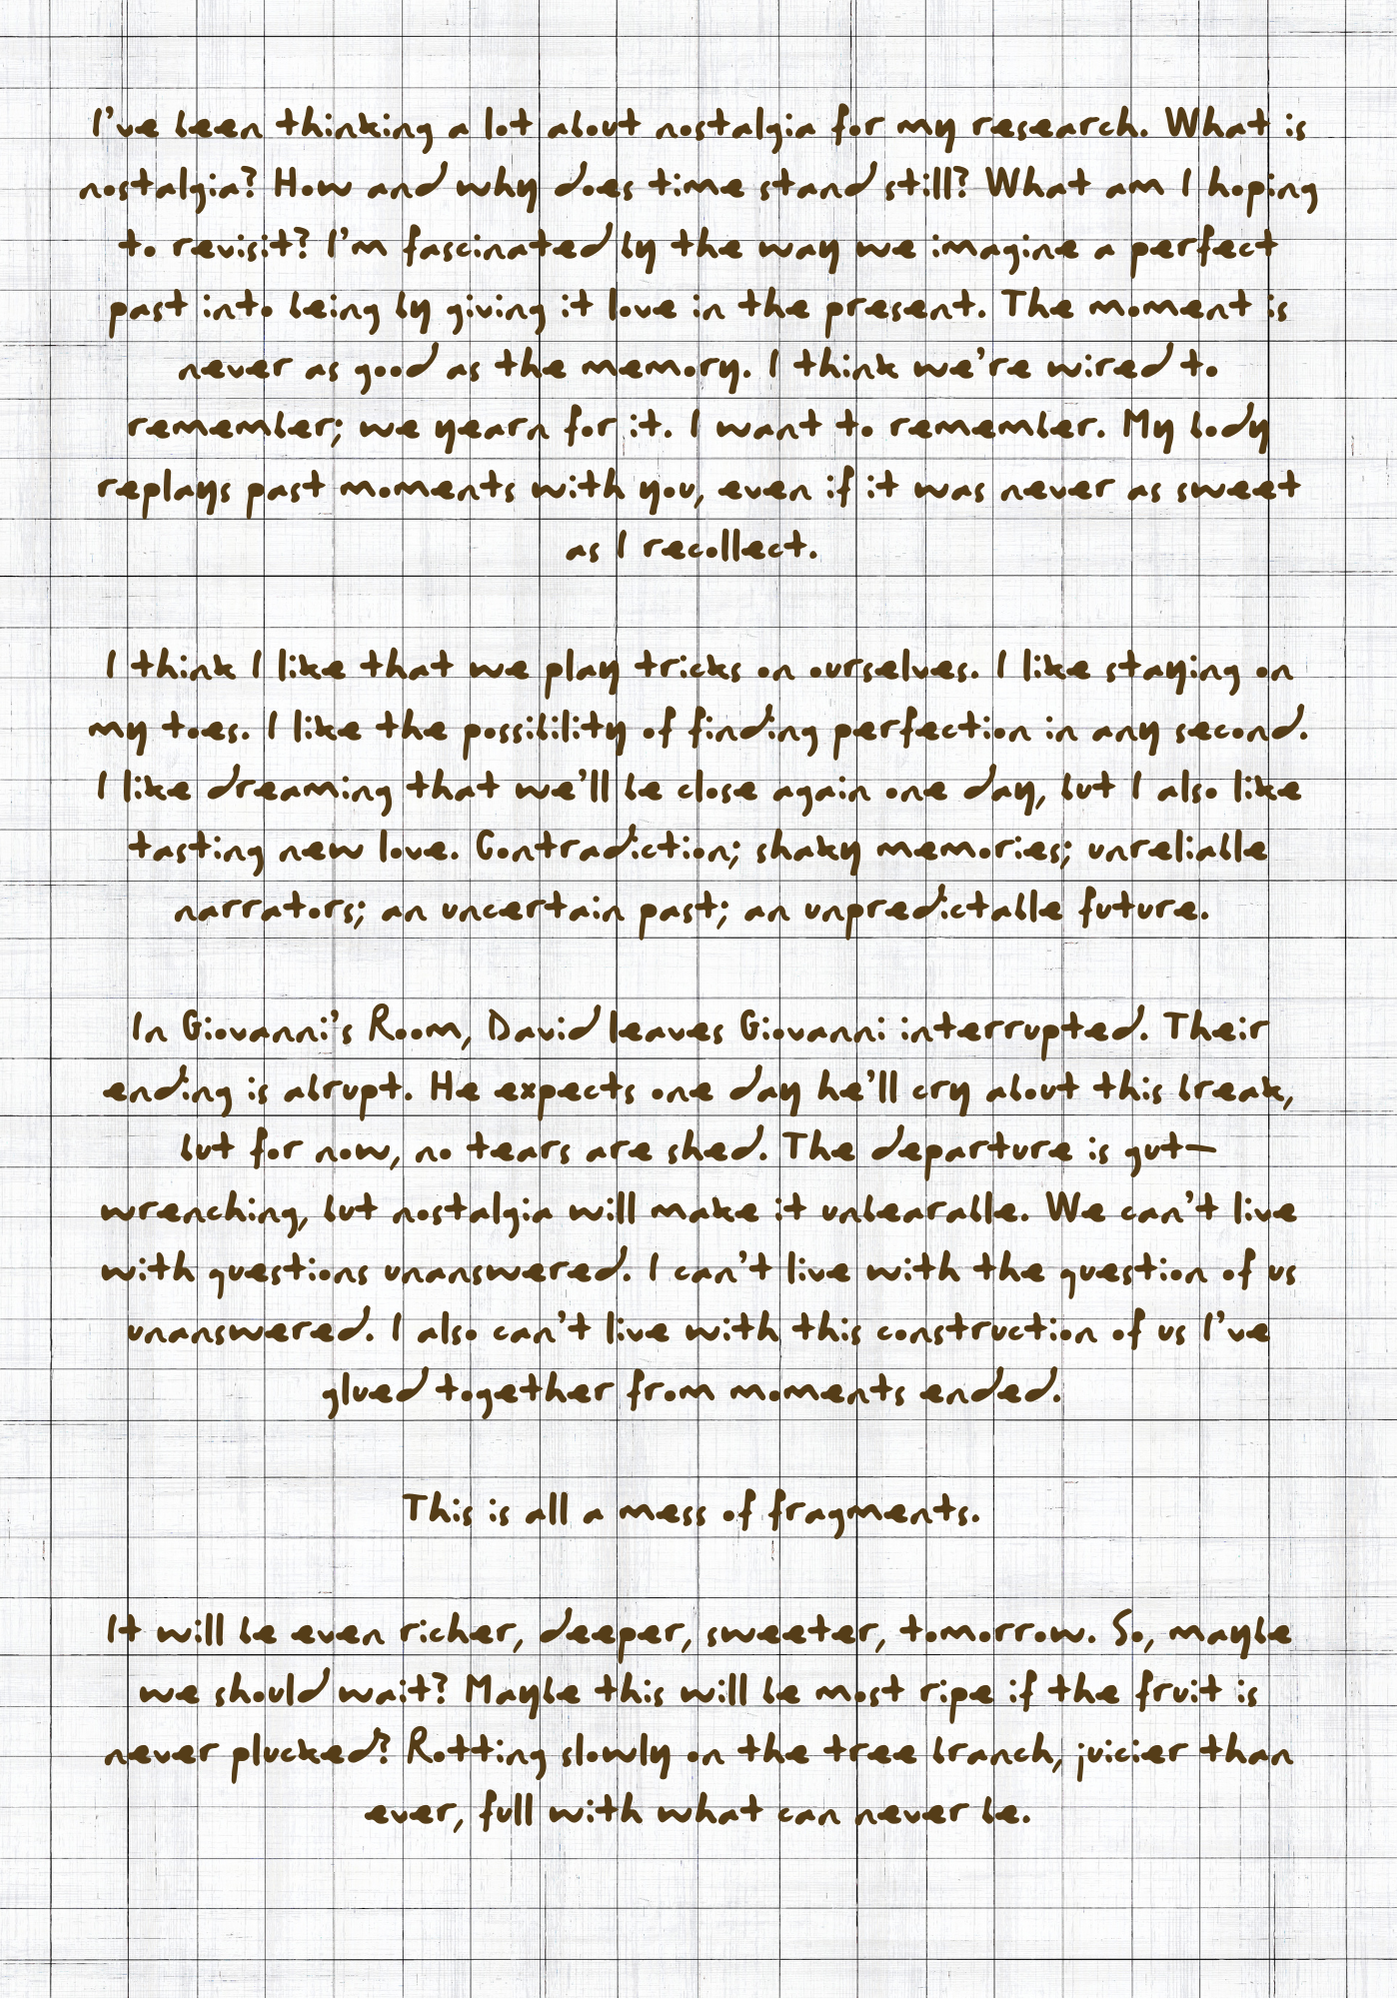 I've been thinking a lot about nostalgia for my research. What is
nostalgia? How and why does time stand still? What am I hoping
to revisit? I'm fascinated by the way we imagine a perfect
past into being by giving it love in the present. The moment is
never as good as the memory. I think we're wired to
remember; we yearn for it. I want to remember. My body
replays past moments with you, even if it was never as sweet
as I recollect.
I think I like that we play tricks on ourselves. I like staying on
my toes. I like the possibility of finding perfection in any second.
I like dreaming that we'll be close again one day, but I also like
tasting new love. Contradiction; shaky memories; unreliable
narrators; an uncertain past; an unpredictable future.
In Giovanni's Room, David leaves Giovanni interrupted. Their
ending is abrupt. He expects one day he'll cry about this break,
but for now, no tears are shed. The departure is gut-
wrenching, but nostalgia will make it unbearable. We can't live
with questions unanswered. I can't live with the question of us
unanswered. I also can't live with this construction of us I've
glued together from moments ended.
This is all a mess of fragments.
It will be even richer, deeper, sweeter, tomorrow. So, maybe
we should wait? Maybe this will be most ripe if the fruit is
never plucked? Rotting slowly on the tree branch, juicier than
ever, full with what can never be.